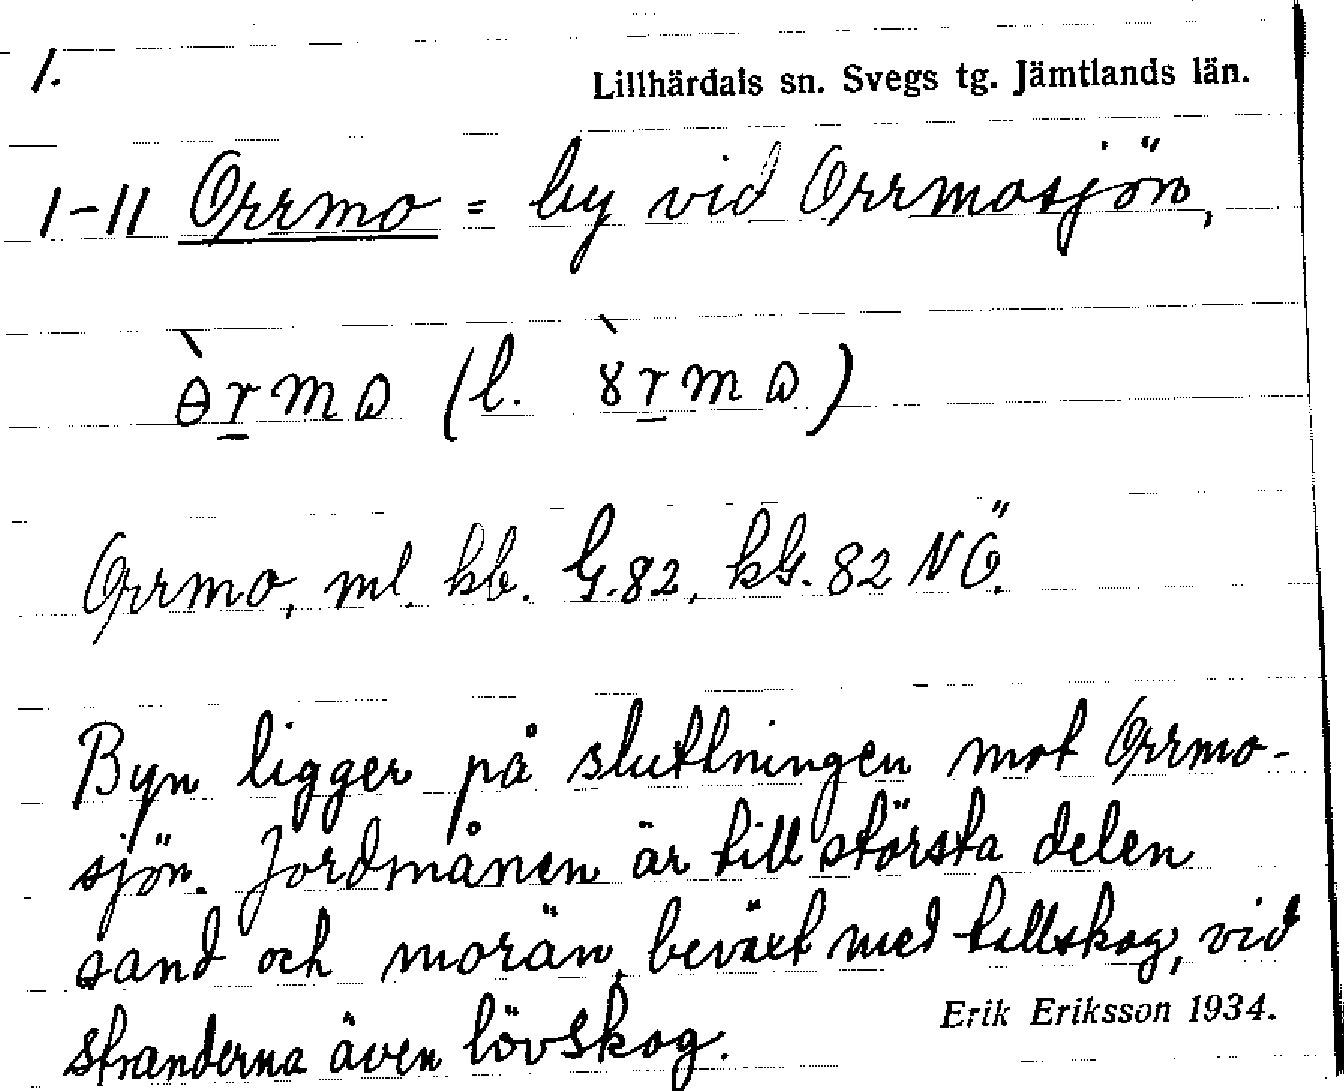 1.
Lillhärdals sn. Svegs tg. Jämtlands län.
1-11 Orrmo = by vid Orrmosjön,
(l.
Orrmo, ml. kb. G.82, kG. 82 NÖ.
Byn ligger på sluttningen mot Orrmo-
sjön. Jordmånen är till största delen
sand och morän, beväxt med tallskog, vid
stränderna även lövskog.
Erik Eriksson 1934.